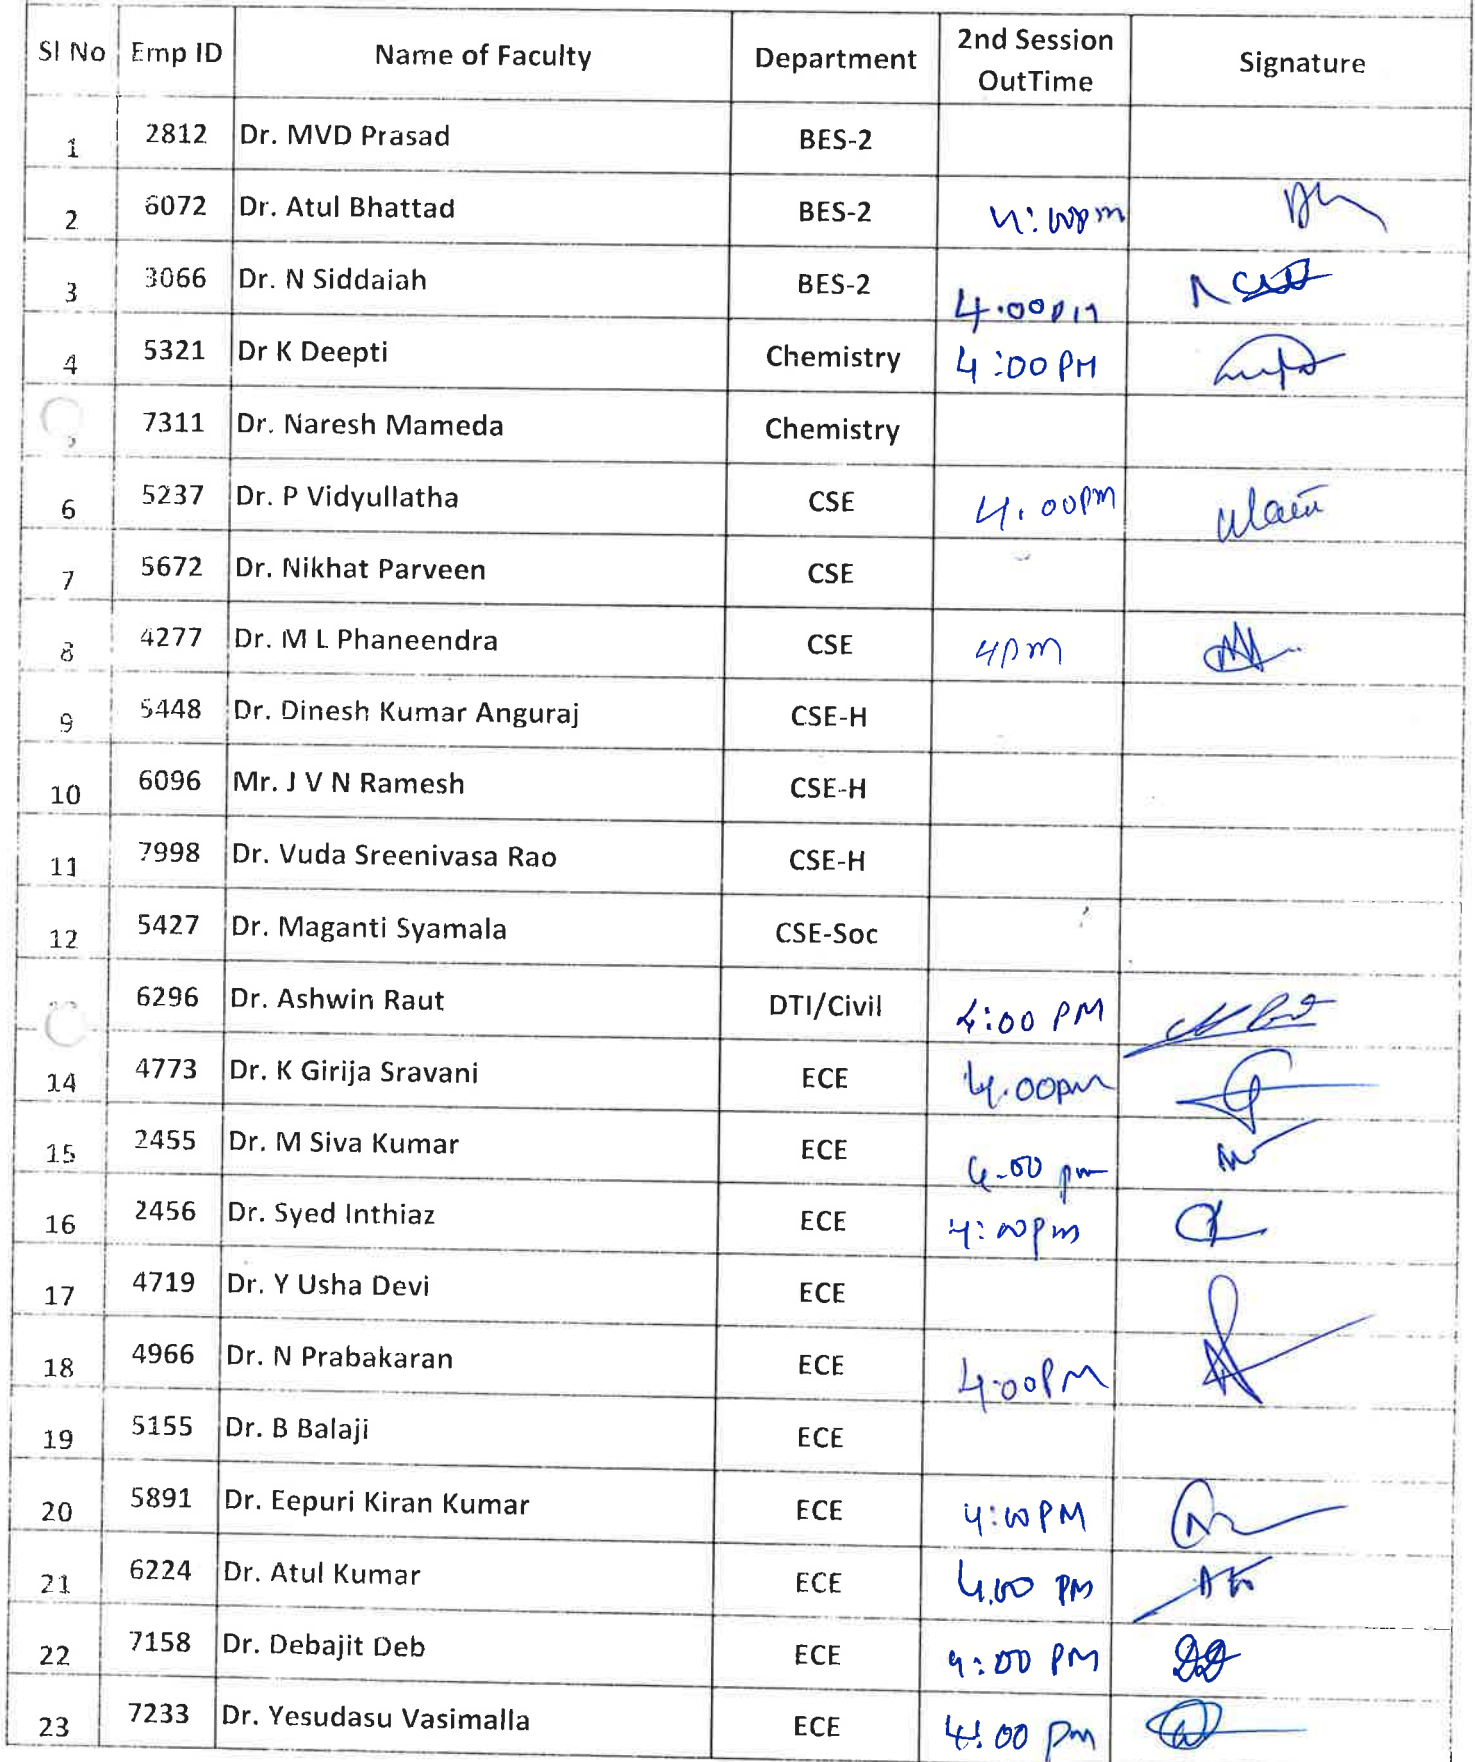 Sl No Emp ID Name of Faculty Department 2nd Session OutTime Signature
1 2812 Dr. MVD Prasad BES-2
2 6072 Dr. Atul Bhattad BES-2 4:00pm
3 3066 Dr. N Siddaiah BES-2 4.00PM
4 5321 Dr K Deepti Chemistry 4:00 PM
7311 Dr. Naresh Mameda Chemistry
6 5237 Dr. P Vidyullatha CSE 4.00PM
7 5672 Dr. Nikhat Parveen CSE
8 4277 Dr. M L Phaneendra CSE 4pm
9 5448 Dr. Dinesh Kumar Anguraj CSE-H
10 6096 Mr. J V N Ramesh CSE-H
11 7998 Dr. Vuda Sreenivasa Rao CSE-H
12 5427 Dr. Maganti Syamala CSE-Soc
6296 Dr. Ashwin Raut DTI/Civil 4:00 PM
14 4773 Dr. K Girija Sravani ECE 4.00pm
15 2455 Dr. M Siva Kumar ECE 4-00 pm
16 2456 Dr. Syed Inthiaz ECE 4:00pm
17 4719 Dr. Y Usha Devi ECE
18 4966 Dr. N Prabakaran ECE 4.00PM
19 5155 Dr. B Balaji ECE
20 5891 Dr. Eepuri Kiran Kumar ECE 4:00PM
21 6224 Dr. Atul Kumar ECE 4.00 PM
22 7158 Dr. Debajit Deb ECE 4:00 PM
23 7233 Dr. Yesudasu Vasimalla ECE 4:00 pm